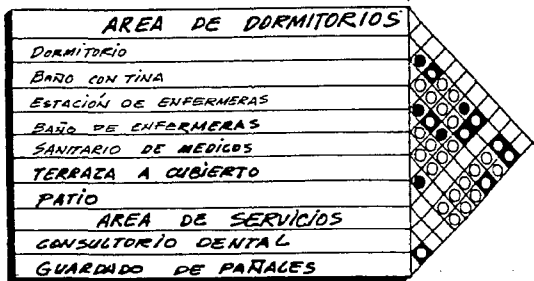 AREA DE DORMITORIOS
DORMITORIO
BAÑO CON TINA
ESTACIÓN DE ENFERMERAS
BAÑO DE ENFERMERAS
SANITARIO DE MEDICOS
TERRAZA A CUBIERTO
PATIO
AREA DE SERVICIOS
CONSULTORIO DENTAL
GUARDADO DE PAÑALES